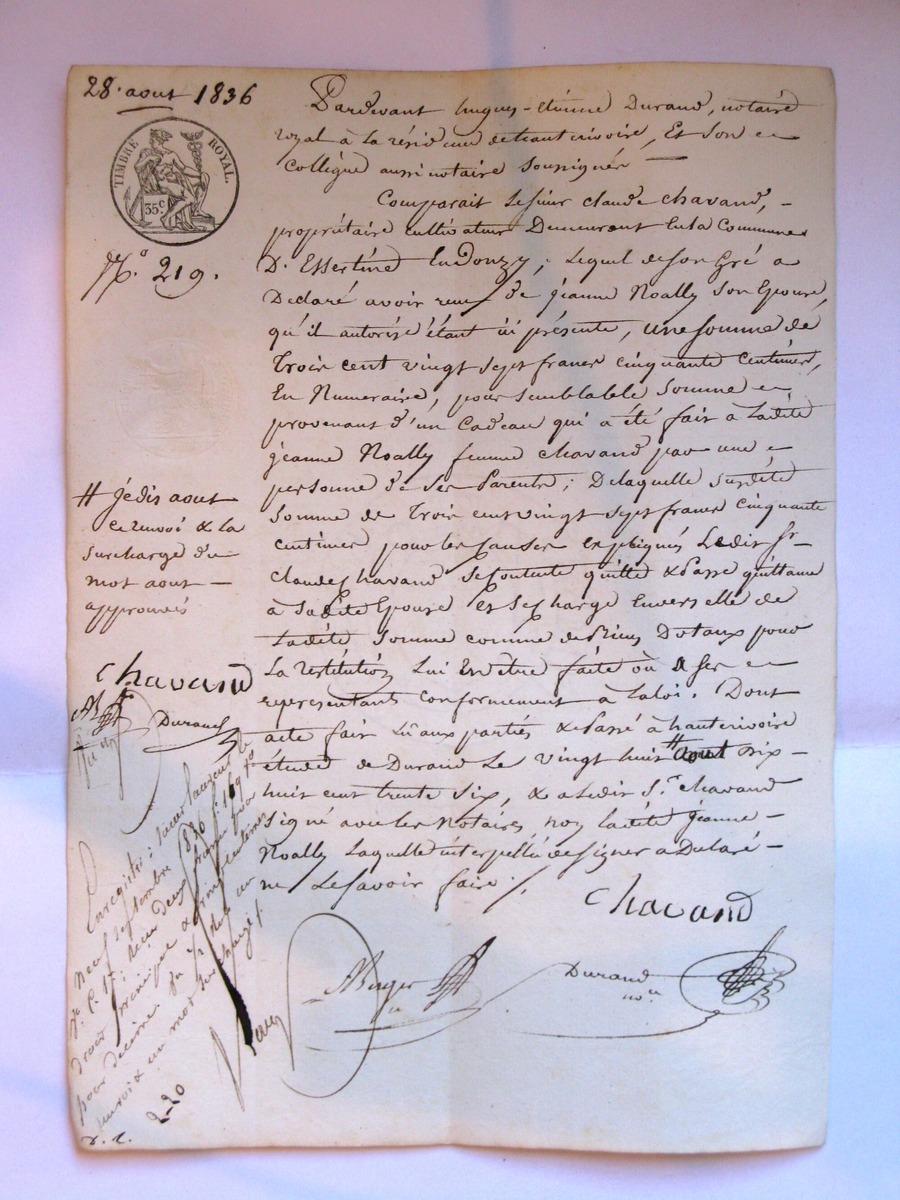 28. aout 1836
TIMBRE ROYAL.
35 c.
N.o 219.
Pardevant hugues-étiénne Durand, notaire
royal à la résidence de hauterivoire, Et Son
Collégue aussi notaire Soussignés
Comparait Lesieur claude chavand,
propriétaire cultivateur Demeurant En la Commune
D'Essertine En Donzy; Lequel de son Gré a
Declaré avoir reçu de jéanne Noally Son Epouse,
qu'il autorise étant ici présente, une somme de
Trois cent vingt sept francs cinquante Centimes,
En Numeraire, pour Semblable Somme
provenant d'un Cadeau qui a été fait à Ladite
jéanne Noally femme chavand par une
personne de Ses Parents; De laquelle susdite
Somme de Trois cent vingt sept francs Cinquante
Centimes pour les Causes Expliqués Ledit Sr
claude chavand Se Contente quitte & Passe quittance
à Sadite Epouse et Se charge Envers elle de
Ladite Somme comme de Biens Dotaux pour
La restitution Lui En être faite où à Ses
representants conformement à La loi. Dont
acte fait Lû aux partiés & Passé à hauterivoire
étude de Durand Le vingt huit # aout dix-
huit cent trente six, & a Ledit Sr. chavand
Signé avec les Notaires non Ladite jéanne
Noally Laquelle interpellée de signer a Declaré
ne Le Savoir faire ./.
# je dis aout
ce renvoi & la
surcharge du
mot aout
approuvés
chavand
Durand
Enregistré à Saint Laurent le
neuf septembre 1836 f.o 169 r.o
c. 17. Reçu deux francs pour
droit principal & vingt centimes
pour décime
renvoi & un mot surchargé ./.
2-20
chavand
Berger
Durand
no.re